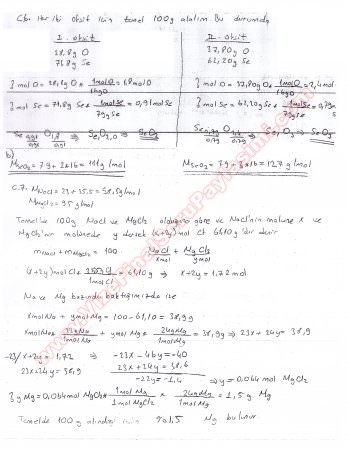 C6. Her iki oksit için temel 100g alalım. Bu durumda
I. Oksit
28,8g O
71,8g Se
II. Oksit
37,80g O
62,20g Se
? mol O = 28,8g O * 1molO/16gO = 1,8molO
? mol O = 37,80g O * 1molO/16gO = 2,4mol
? mol Se = 71,8g Se * 1molSe/79gSe = 0,91molSe
? mol Se = 62,20g Se * 1molSe/79gSe = 0,79m
Se 0,91/0,91 O 1,8/0,91 ⇒ Se1O2,0 ⇒ SeO2
Se 0,79/0,79 O 2,4/0,79 ⇒ Se1O3 ⇒ SeO3
b)
MSeO2 = 79 + 2*16 = 111g/mol
MSeO3 = 79 + 3*16 = 127 g/mol
C.7. MNaCl = 23 + 35,5 = 58,5g/mol
MMgCl2 = 95g/mol
Temelde 100g NaCl ve MgCl2 olduğuna göre ve NaCl'nin molüne x ve
MgCl2'nin molünede y dersek (x+2y) mol Cl 61,10g'dır denir
mNaCl + mMgCl2 = 100 NaCl/xmol + MgCl2/ymol
(x+2y)mol Cl * 35,5g/1molCl = 61,10g ⇒ x+2y = 1,72 mol
Na ve Mg bazında baktığımızda ise
xmolNa + ymolMg = 100-61,10 = 38,9g
xmolNa * 23gNa/1molNa + ymol Mg * 24gMg/1molMg = 38,9g ⇒ 23x + 24y = 38,9
-23/ x+2y = 1,72 ⇒ -23x - 46y = -40
23x+24y = 38,9 23x + 24y = 38,6
-22y = -1,4 ⇒ y = 0,064 mol MgCl2
? g Mg = 0,064mol MgCl2 * 1mol Mg/1mol MgCl2 * 24gMg/1molMg = 1,5 g Mg
Temelde 100g alındığı için %1,5 Mg bulunur